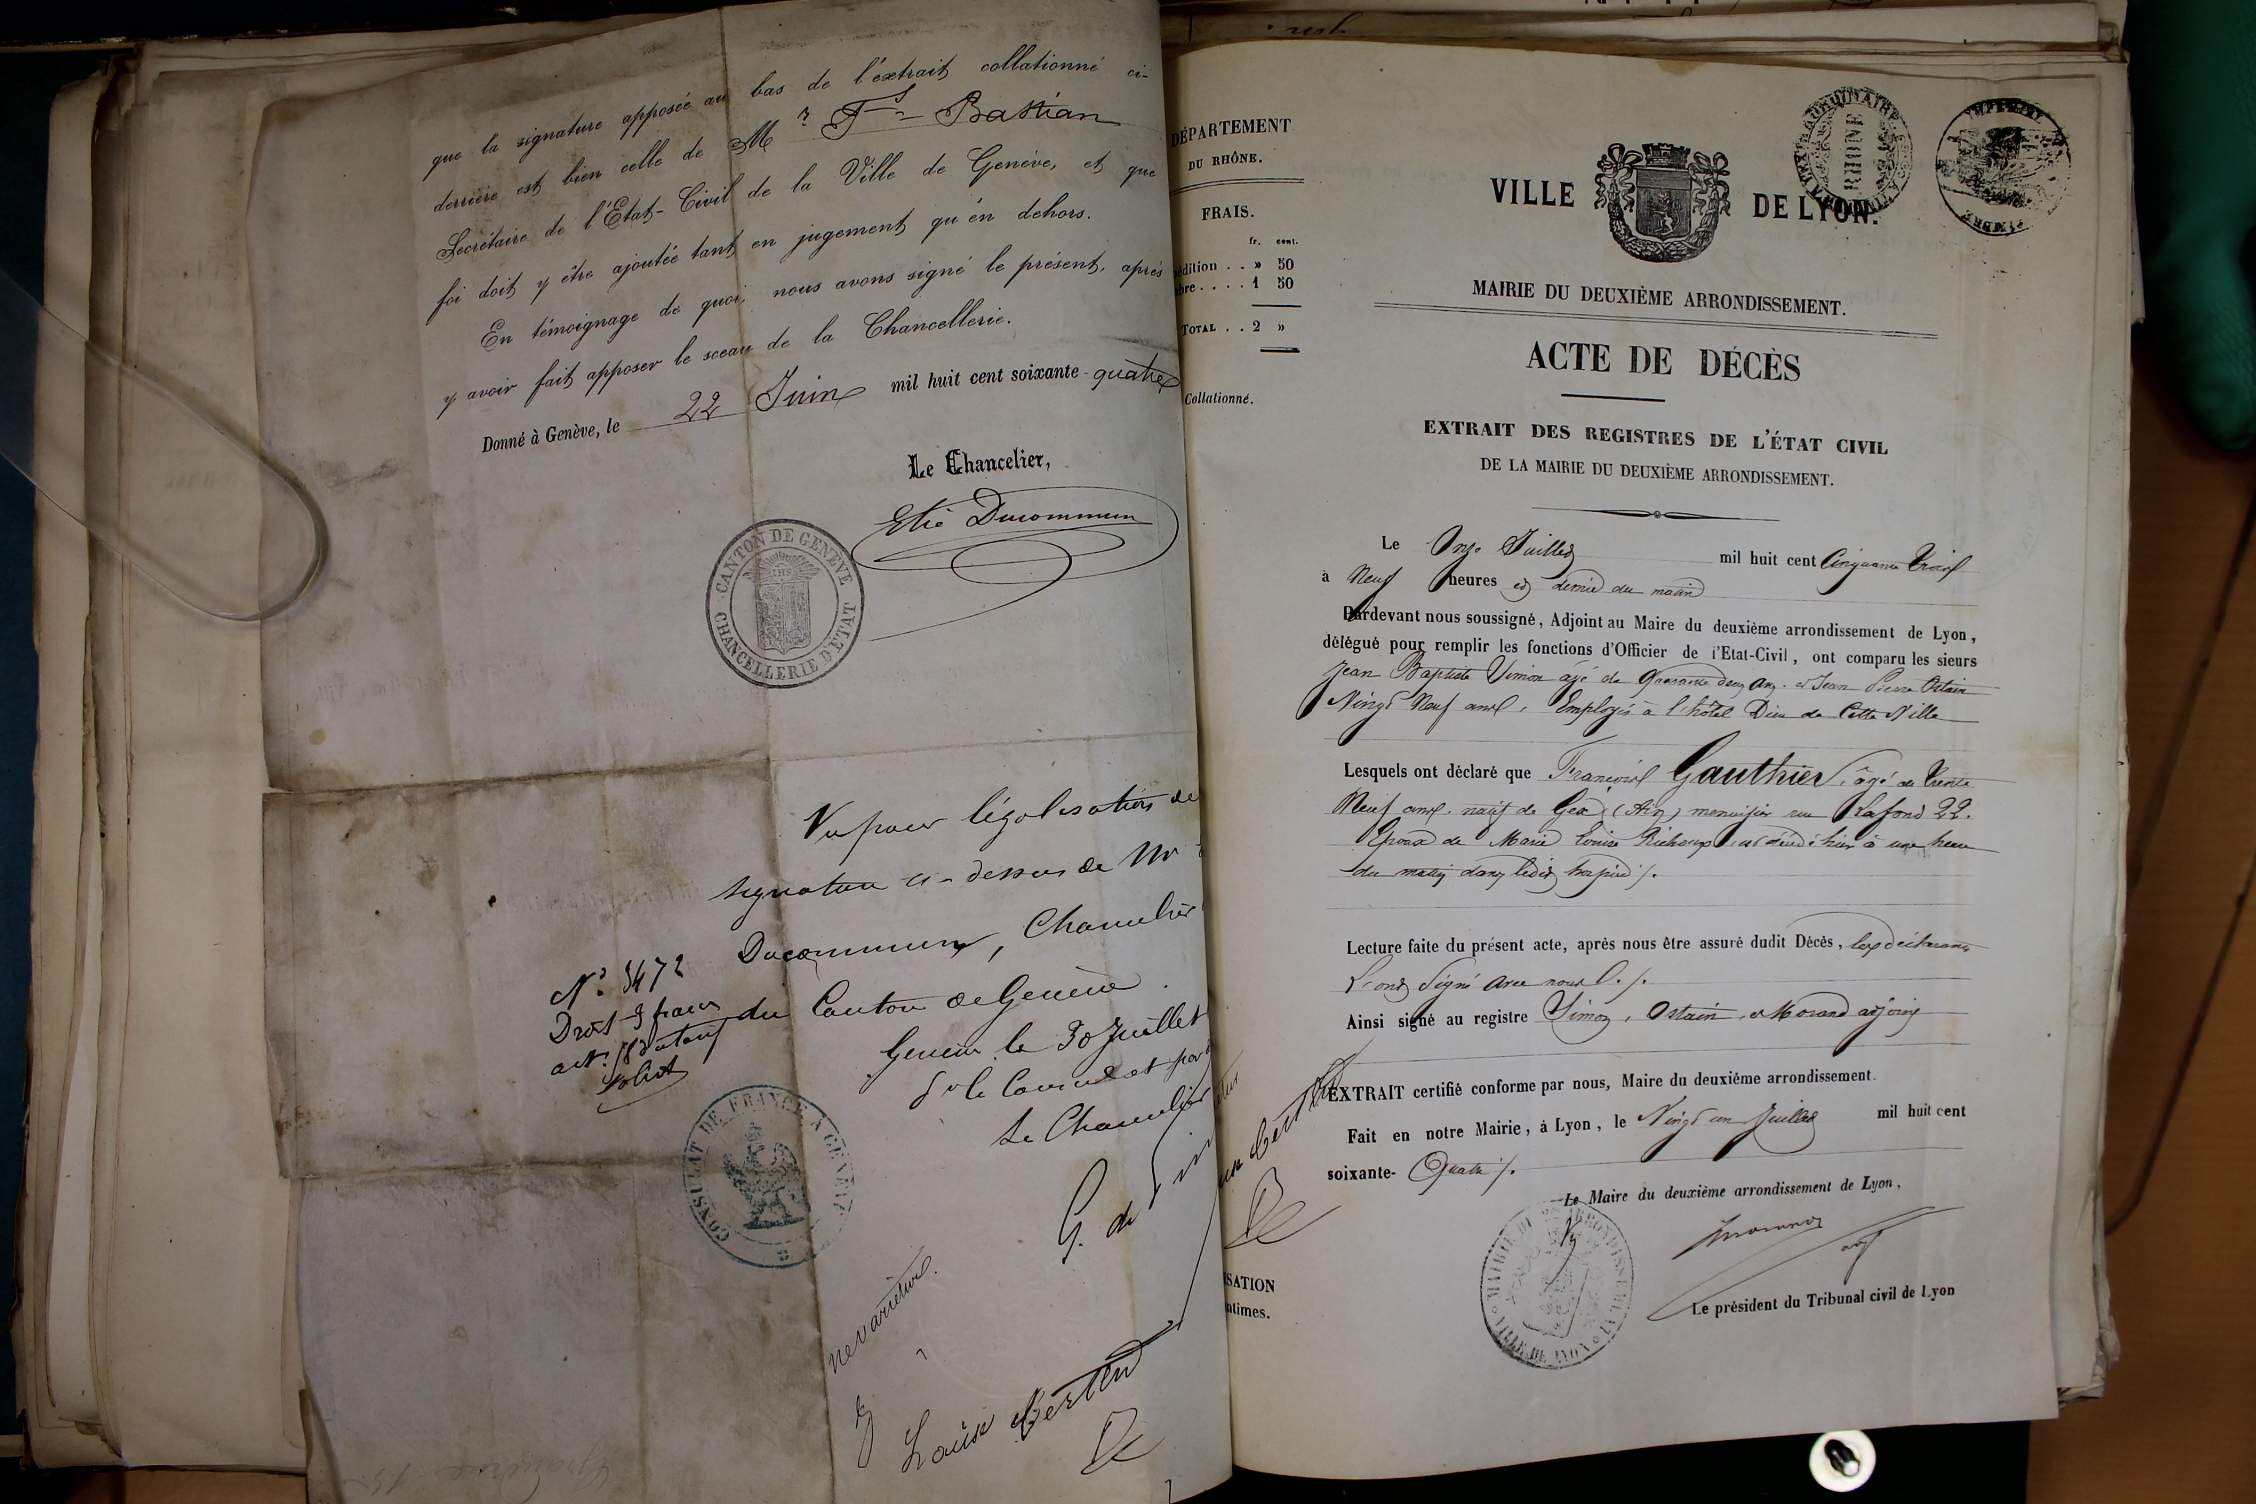 que la signature apposée au bas de l'extrait collationné ci-
derrière est bien celle de Mr Fs Bastian
Secrétaire de l'Etat-Civil de la Ville de Genève, et que
foi doit y être ajoutée tant en jugement qu'en dehors.
En témoignage de quoi, nous avons signé le présent, après
y avoir fait apposer le sceau de la Chancellerie.
Donné à Genève, le 22 Juin mil huit cent soixante-quatre
Le Chancelier,
Elie Ducommun
CANTON DE GENÈVE
CHANCELLERIE D'ÉTAT
Vu pour légalisation de
signature ci-dessus de Mr
Ducommun, Chancelier
du Canton de Genève.
Genève le 30 Juillet
Le Chancelier
G. de
N° 3472
Droit 3 francs
CONSULAT DE FRANCE A GENÈVE
ne varietur.
Louise Bertin
DÉPARTEMENT
DU RHÔNE.
FRAIS.
fr. cent.
édition . . » 50
bre . . . . 1 50
TOTAL . . 2 »
Collationné.
SATION
ntimes.
VILLE DE LYON.
RHONE
MAIRIE DU DEUXIÈME ARRONDISSEMENT.
ACTE DE DÉCÈS
EXTRAIT DES REGISTRES DE L'ÉTAT CIVIL
DE LA MAIRIE DU DEUXIÈME ARRONDISSEMENT.
Le Onze Juillet mil huit cent Cinquante Trois
à Neuf heures et demie du matin
Pardevant nous soussigné, Adjoint au Maire du deuxième arrondissement de Lyon,
délégué pour remplir les fonctions d'Officier de l'Etat-Civil, ont comparu les sieurs
Jean Baptiste Simon âgé de Quarante deux ans. et Jean Pierre Ostain
Vingt Neuf ans, Employés à l'hôtel Dieu de Cette Ville
Lesquels ont déclaré que François Gauthier, âgé de Trente
Neuf ans, natif de Gex (Ain) menuisier rue Lafond 22.
Epoux de Marie Louise est décédé hier à une heure
du matin dans ledit hospice /.
Lecture faite du présent acte, après nous être assuré dudit Décès, les déclarants
L'ont Signé avec nous /.
Ainsi signé au registre Simon, Ostain, et Morand adjoint
EXTRAIT certifié conforme par nous, Maire du deuxième arrondissement.
Fait en notre Mairie, à Lyon, le Vingt un Juillet mil huit cent
soixante-Quatre /.
Le Maire du deuxième arrondissement de Lyon,
MAIRIE DU 2e ARRONDISSEMENT
VILLE DE LYON
Le président du Tribunal civil de Lyon